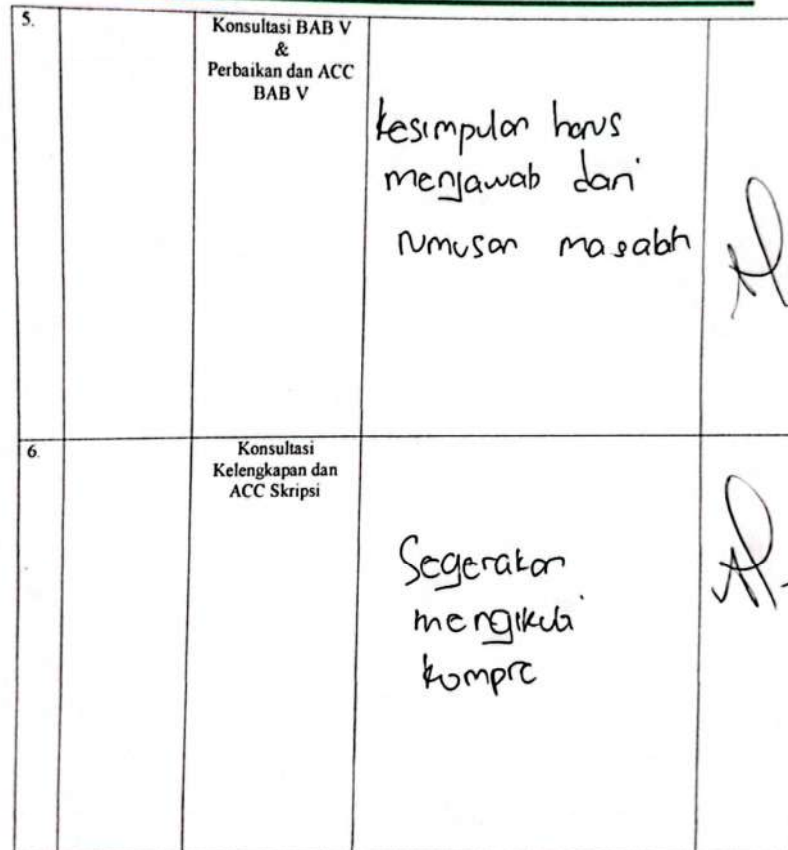 5.
Konsultasi BAB V
&
Perbaikan dan ACC
BAB V
kesimpulan harus
menjawab dari
rumusan masalah
6.
Konsultasi
Kelengkapan dan
ACC Skripsi
Segerakan
mengikuti
kompre